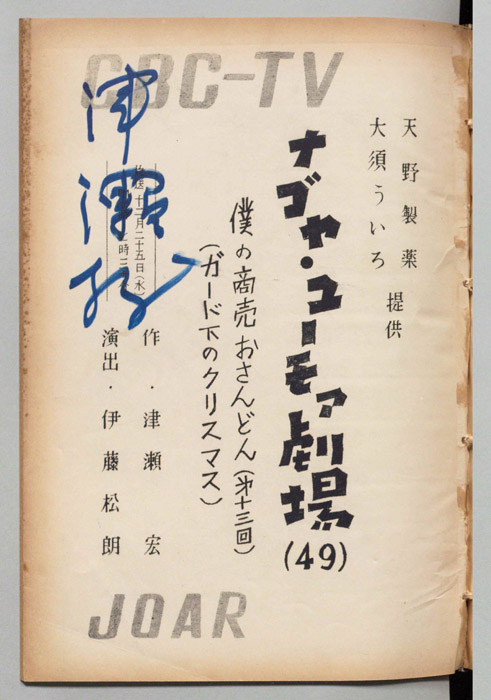 CBC-TV
天野製薬
大須ういろ 提供
ナゴヤ・ユーモア劇場
(49)
僕の商売おさんどん(第十三回)
(ガード下のクリスマス)
十二月二十五日(水)
作・津瀬 宏
演出・伊藤松朗
JOAR